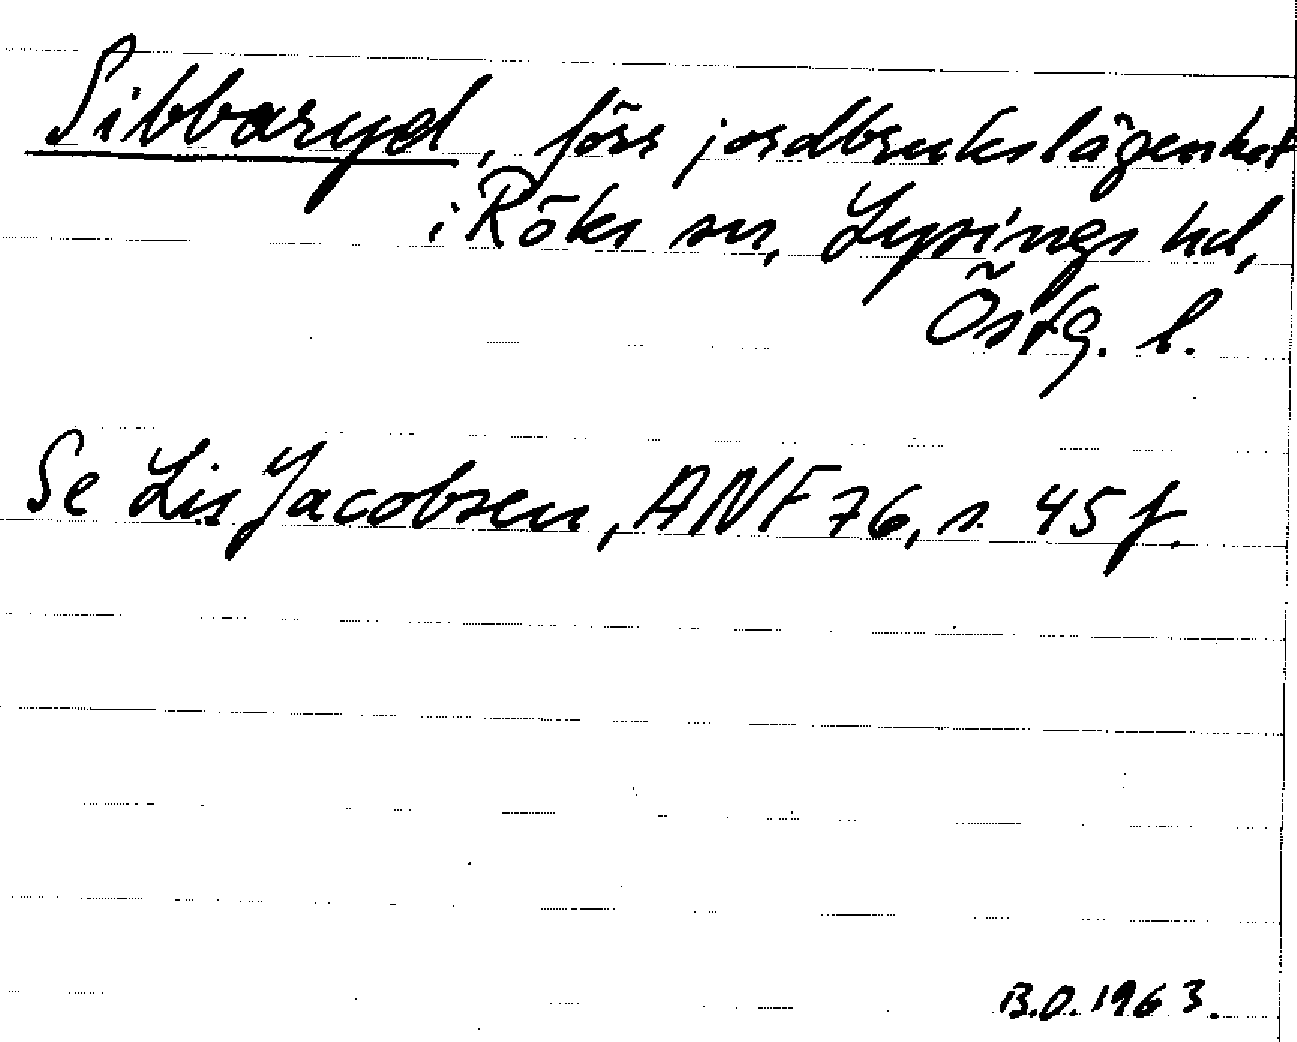 Sibbaryd, förr jordbrukslägenhet
i Röks sn, Lysings hd,
Östg. l.
Se Lis Jacobsen, ANF 76, s. 45 f.
B.O. 1963.